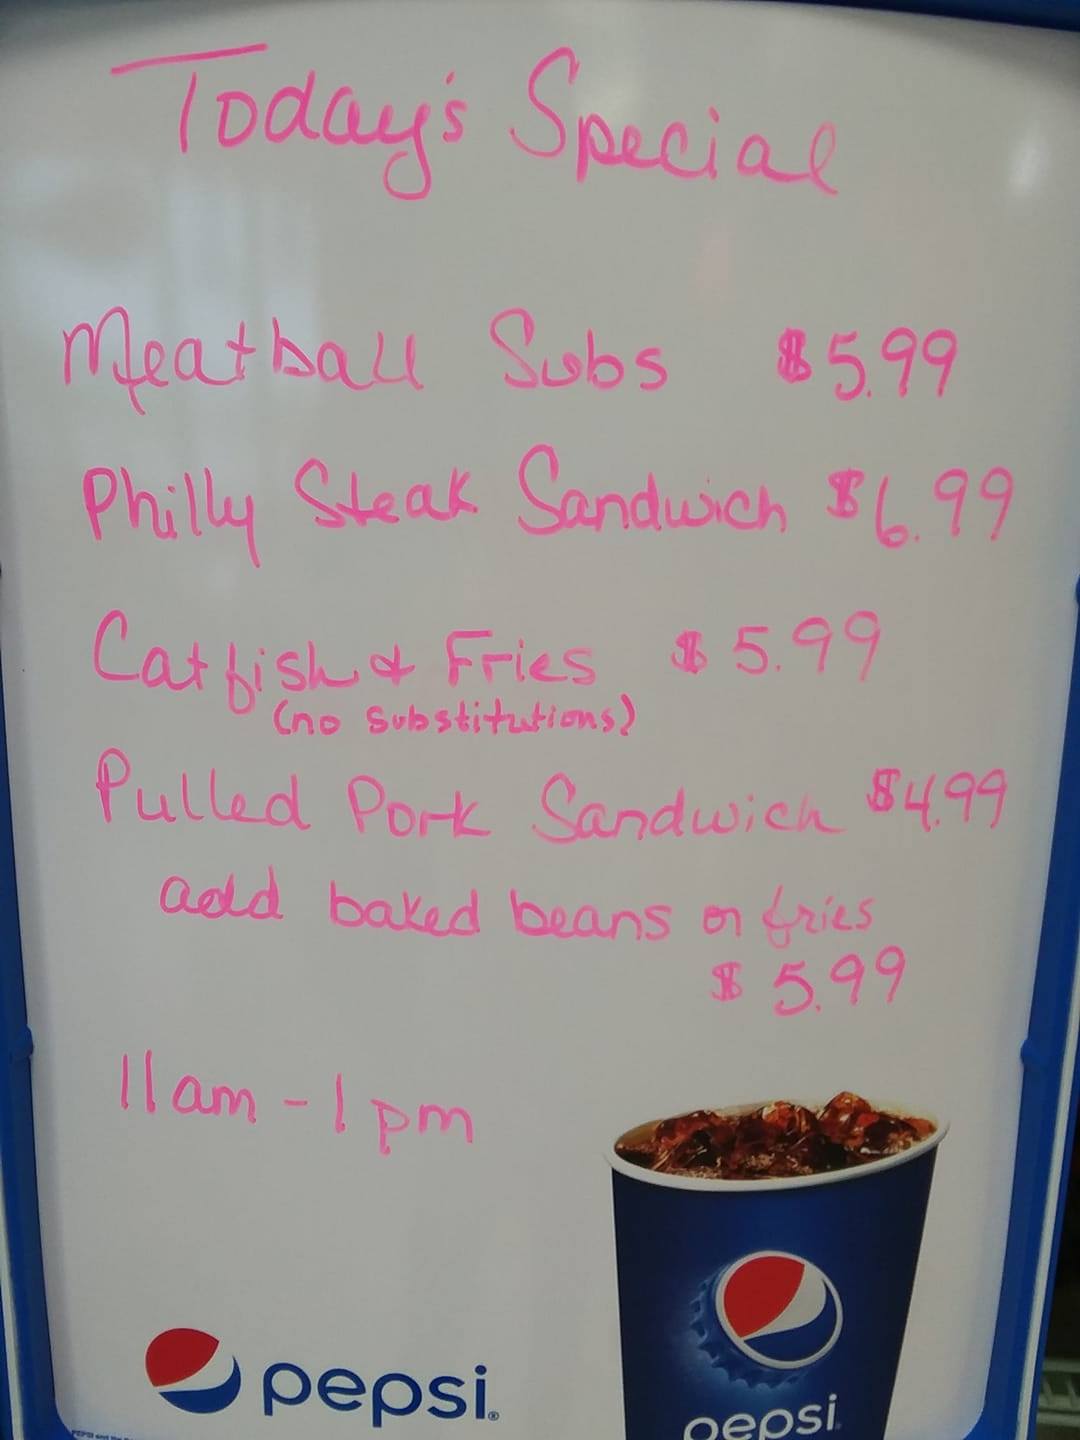 Today's Special
Meatball Subs $5.99
Philly Steak Sandwich $6.99
Catfish & Fries $5.99
(no substitutions)
Pulled Pork Sandwich $4.99
add baked beans or fries
$5.99
11am - 1pm
pepsi®
pepsi